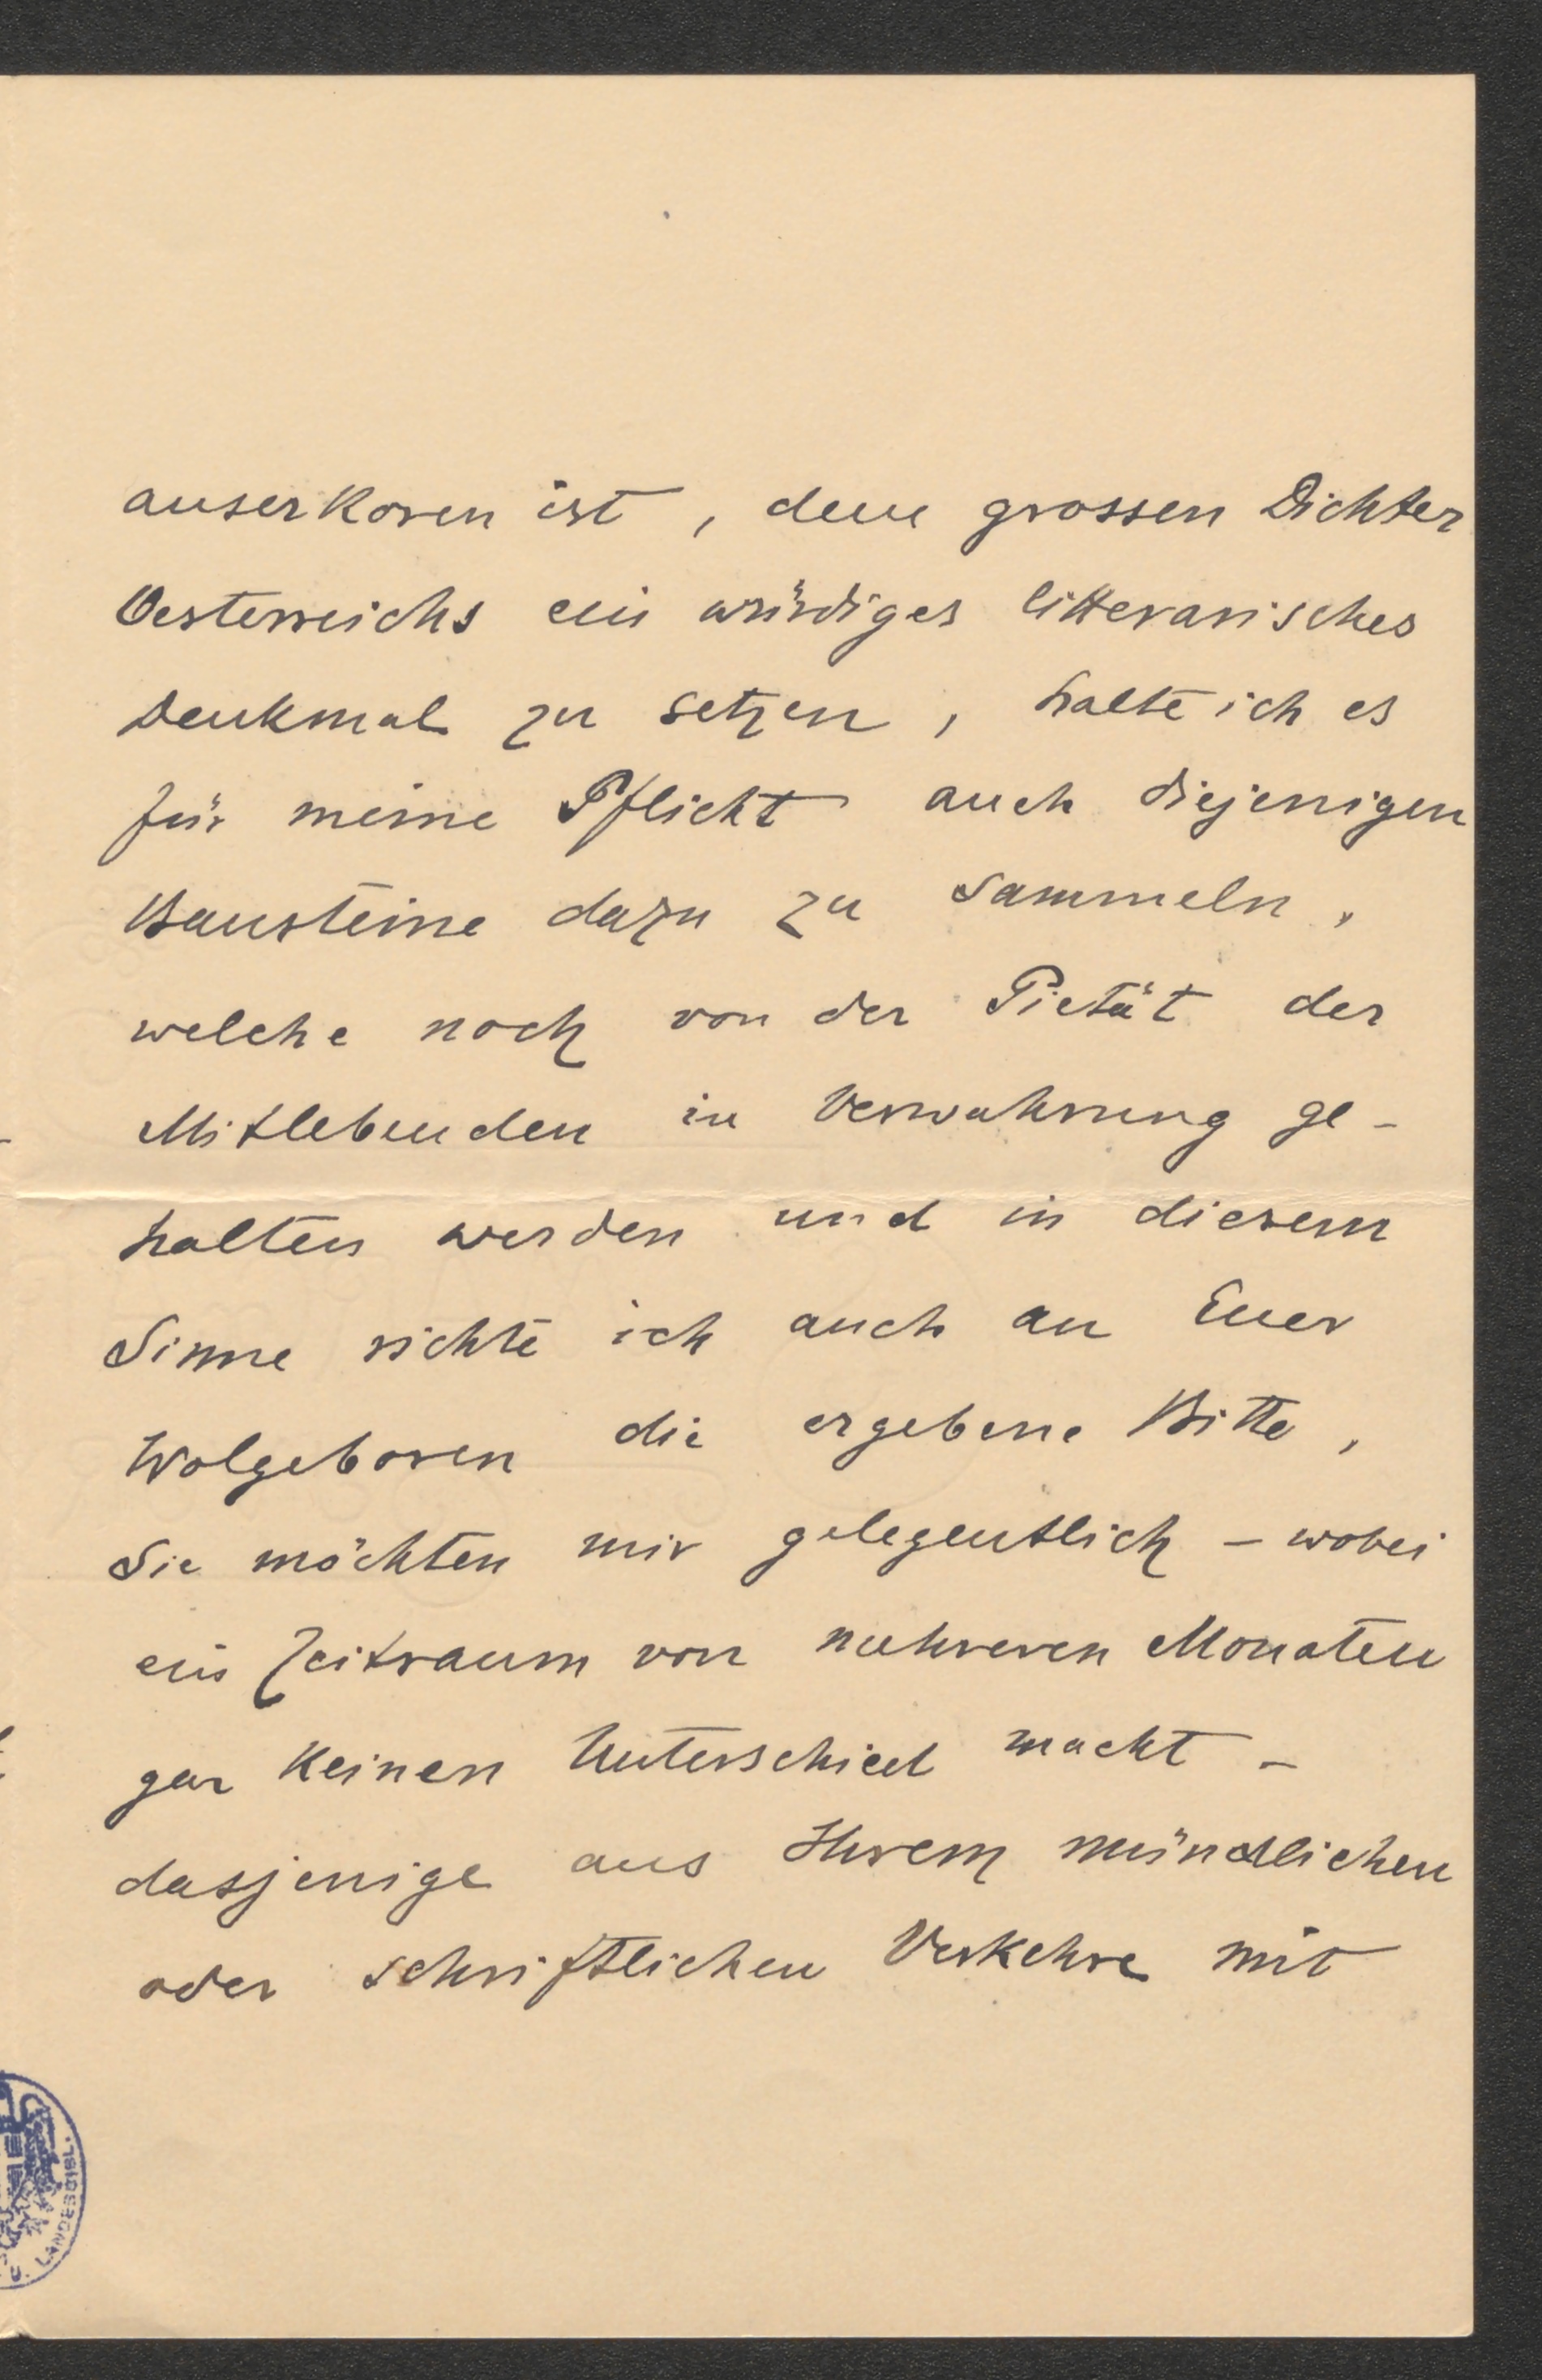 auserkoren ist, dem grossen Dichter
Oesterreichs ein würdiges litterarisches
Denkmal zu setzen, halte ich es
für meine Pflicht auch diejenigen
Bausteine dazu zu sammeln,
welche noch von der Pietät der
Mitlebenden in Verwahrung ge-
halten werden und in diesem
Sinne richte ich auch an Euer
Wolgeboren die ergebene Bitte,
Sie möchten mir gelegentlich – wobei
ein Zeitraum von mehreren Monaten
gar keinen Unterschied macht –
dasjenige aus Ihrem mündlichen
oder schriftlichen Verkehre mit
LANDESBIBL.